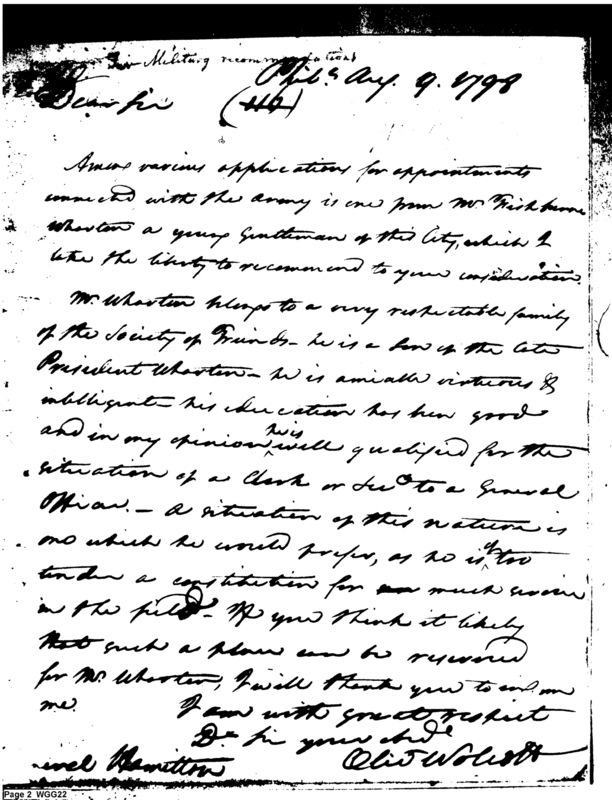 for Military recommendations
Phila Aug. 9. 1798
Dear sir (110)
Among various applications for appointments
connected with the Army is one from Mr. Fishbourne
Wharton a young Gentleman of this City, which I
take the liberty to recommend to your consideration.
Mr. Wharton belongs to a very respectable family
of the Society of Friends - he is a Son of the late
President Wharton - he is amiable virtuous &
intelligent - his education has been good
and in my opinion he is well qualified for the
situation of a Clerk or Secy to a General
Officer. - A situation of this nature is
one which he would prefer, as he is of too
tender a constitution for much service
in the field. - If you think it likely
that such a place can be reserved
for Mr. Wharton, I will thank you to inform
me. I am with great respect
Dr Sir your obed
Hamilton Oliv Wolcott
Page 2 WGG22